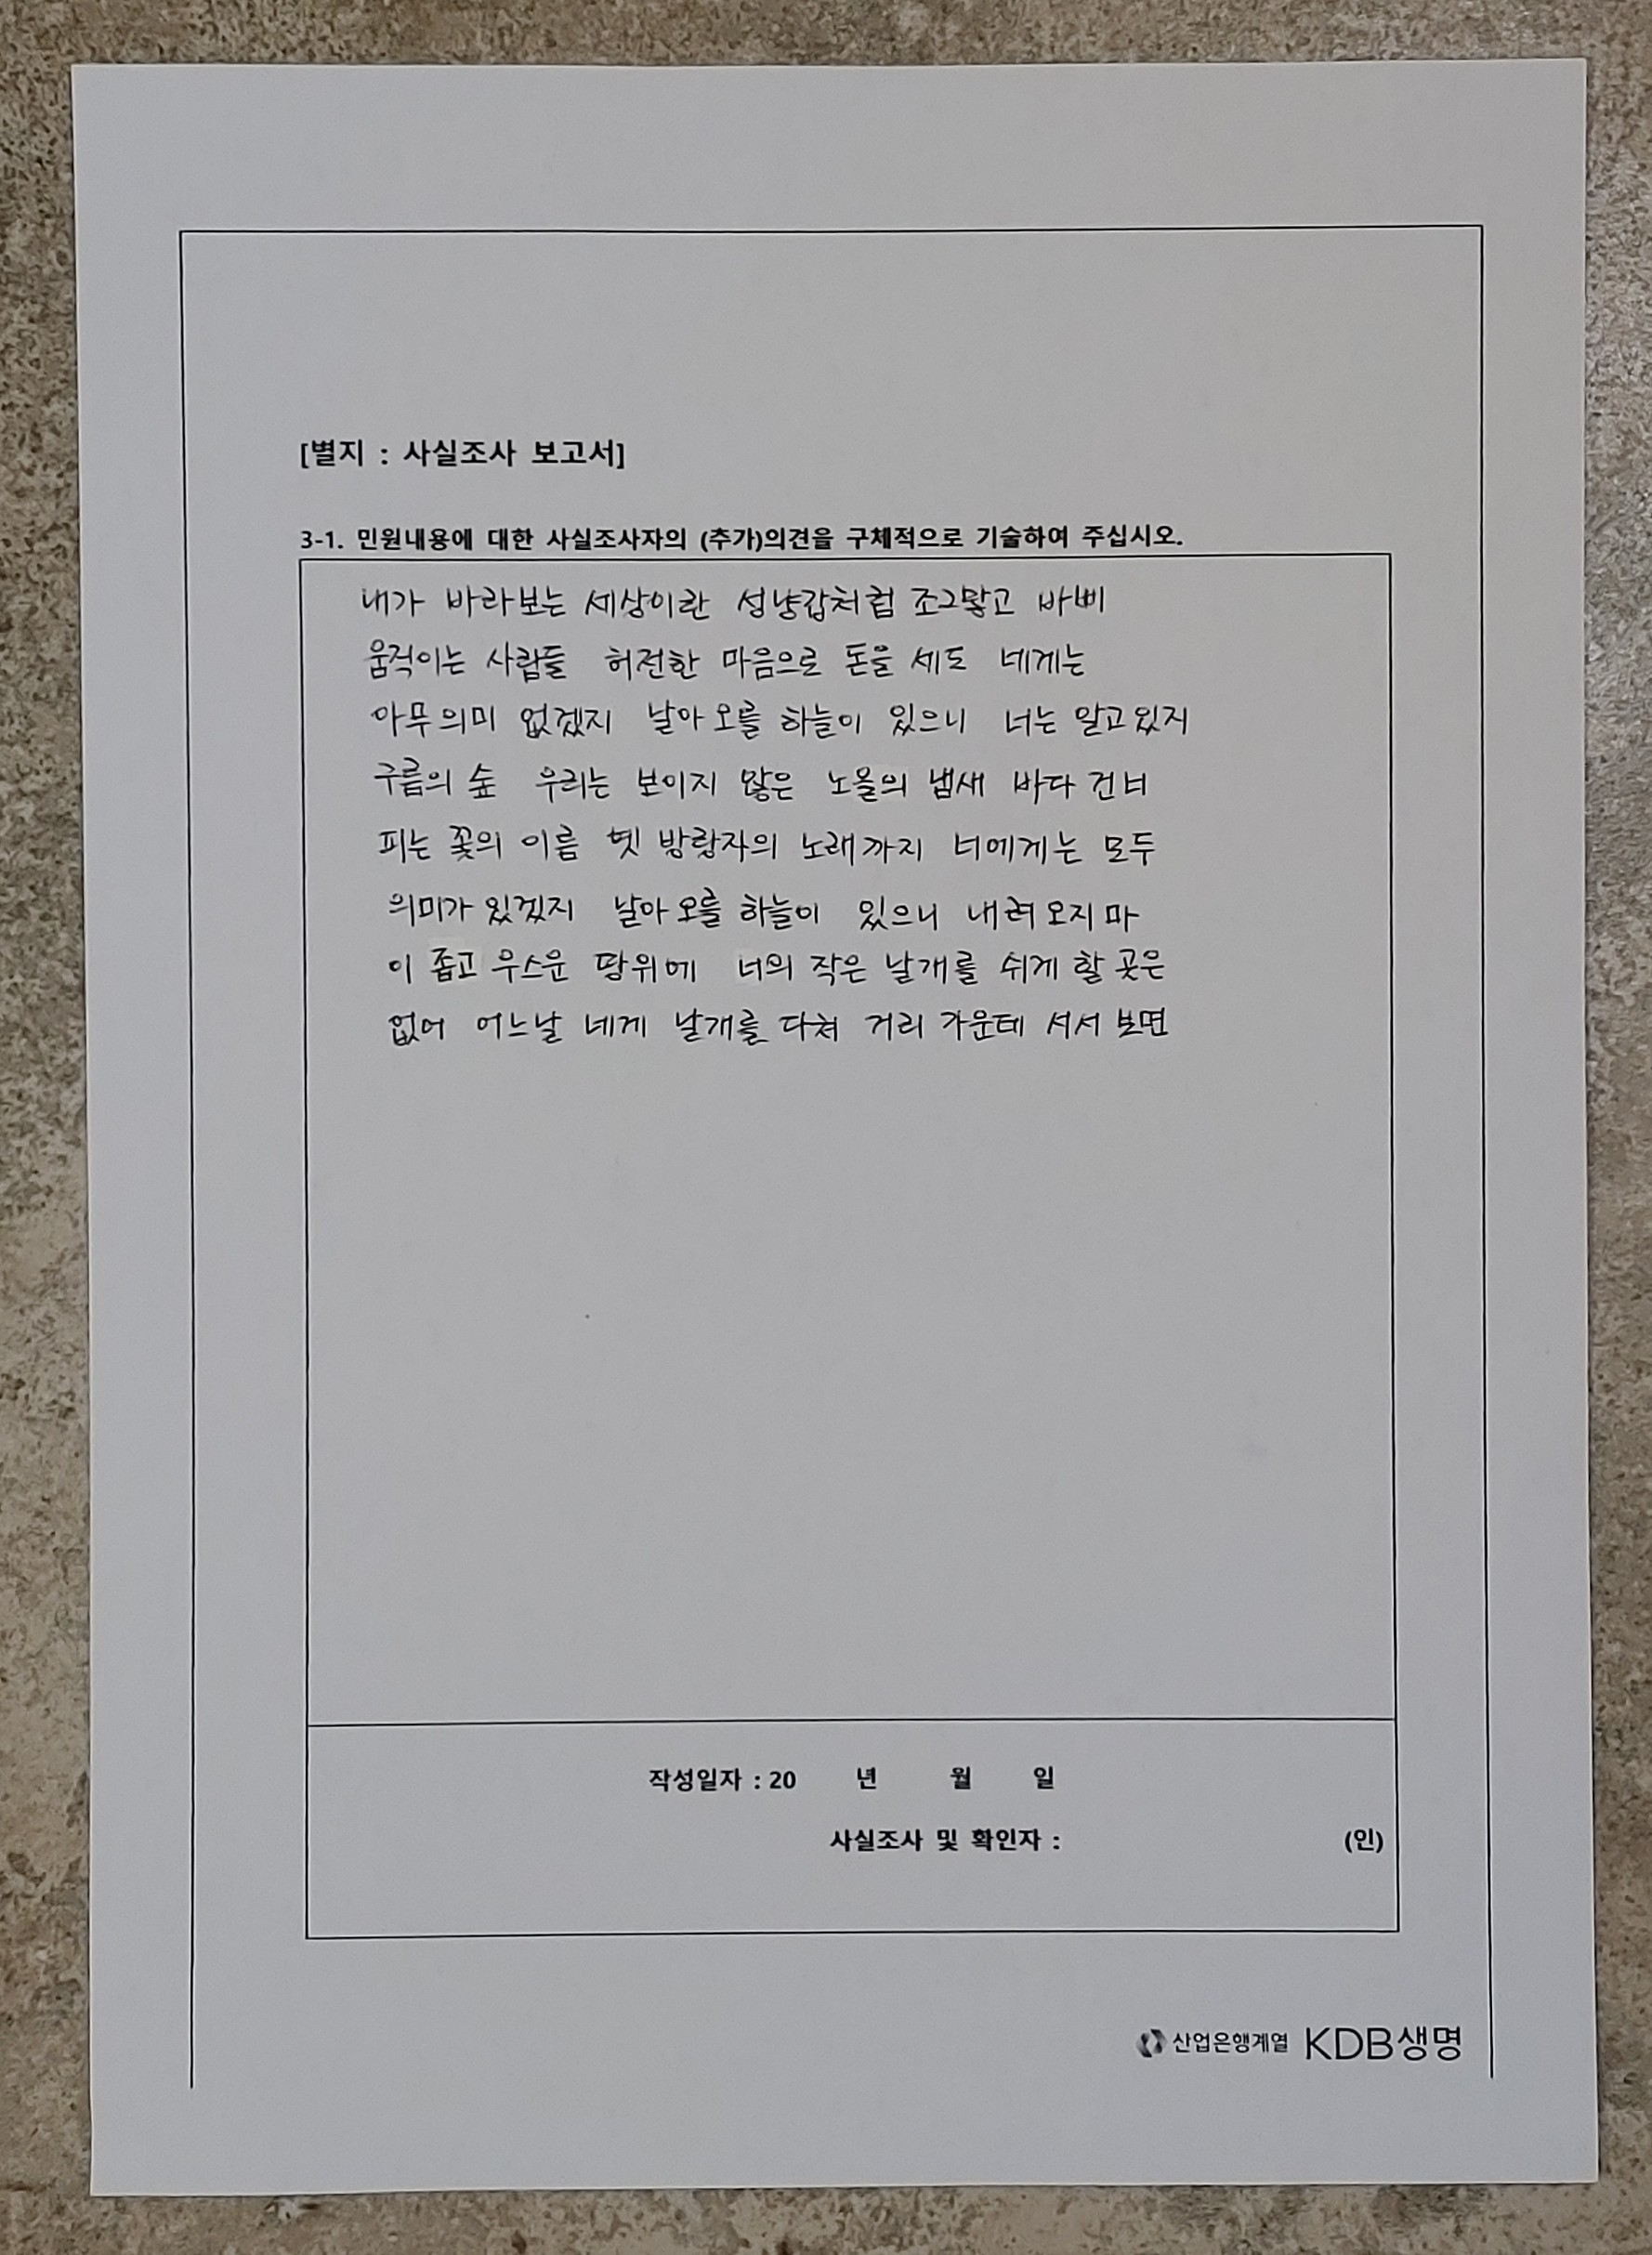 [별지 : 사실조사 보고서]
3-1. 민원내용에 대한 사실조사자의 (추가)의견을 구체적으로 기술하여 주십시오.
내가 바라보는 세상이란 성냥갑처럼 조그맣고 바삐
움직이는 사람들 허전한 마음으로 돈을 세도 네게는
아무 의미 없겠지 날아 오를 하늘이 있으니 너는 알고 있지
구름의 숲 우리는 보이지 않은 노을의 냄새 바다 건너
피는 꽃의 이름 옛 방랑자의 노래까지 너에게는 모두
의미가 있겠지 날아 오를 하늘이 있으니 내려 오지 마
이 좁고 우스운 땅위에 너의 작은 날개를 쉬게 할 곳은
없어 어느날 네게 날개를 다쳐 거리 가운데 서서 보면
작성일자 : 20 년 월 일
사실조사 및 확인자 : (인)
산업은행계열 KDB생명